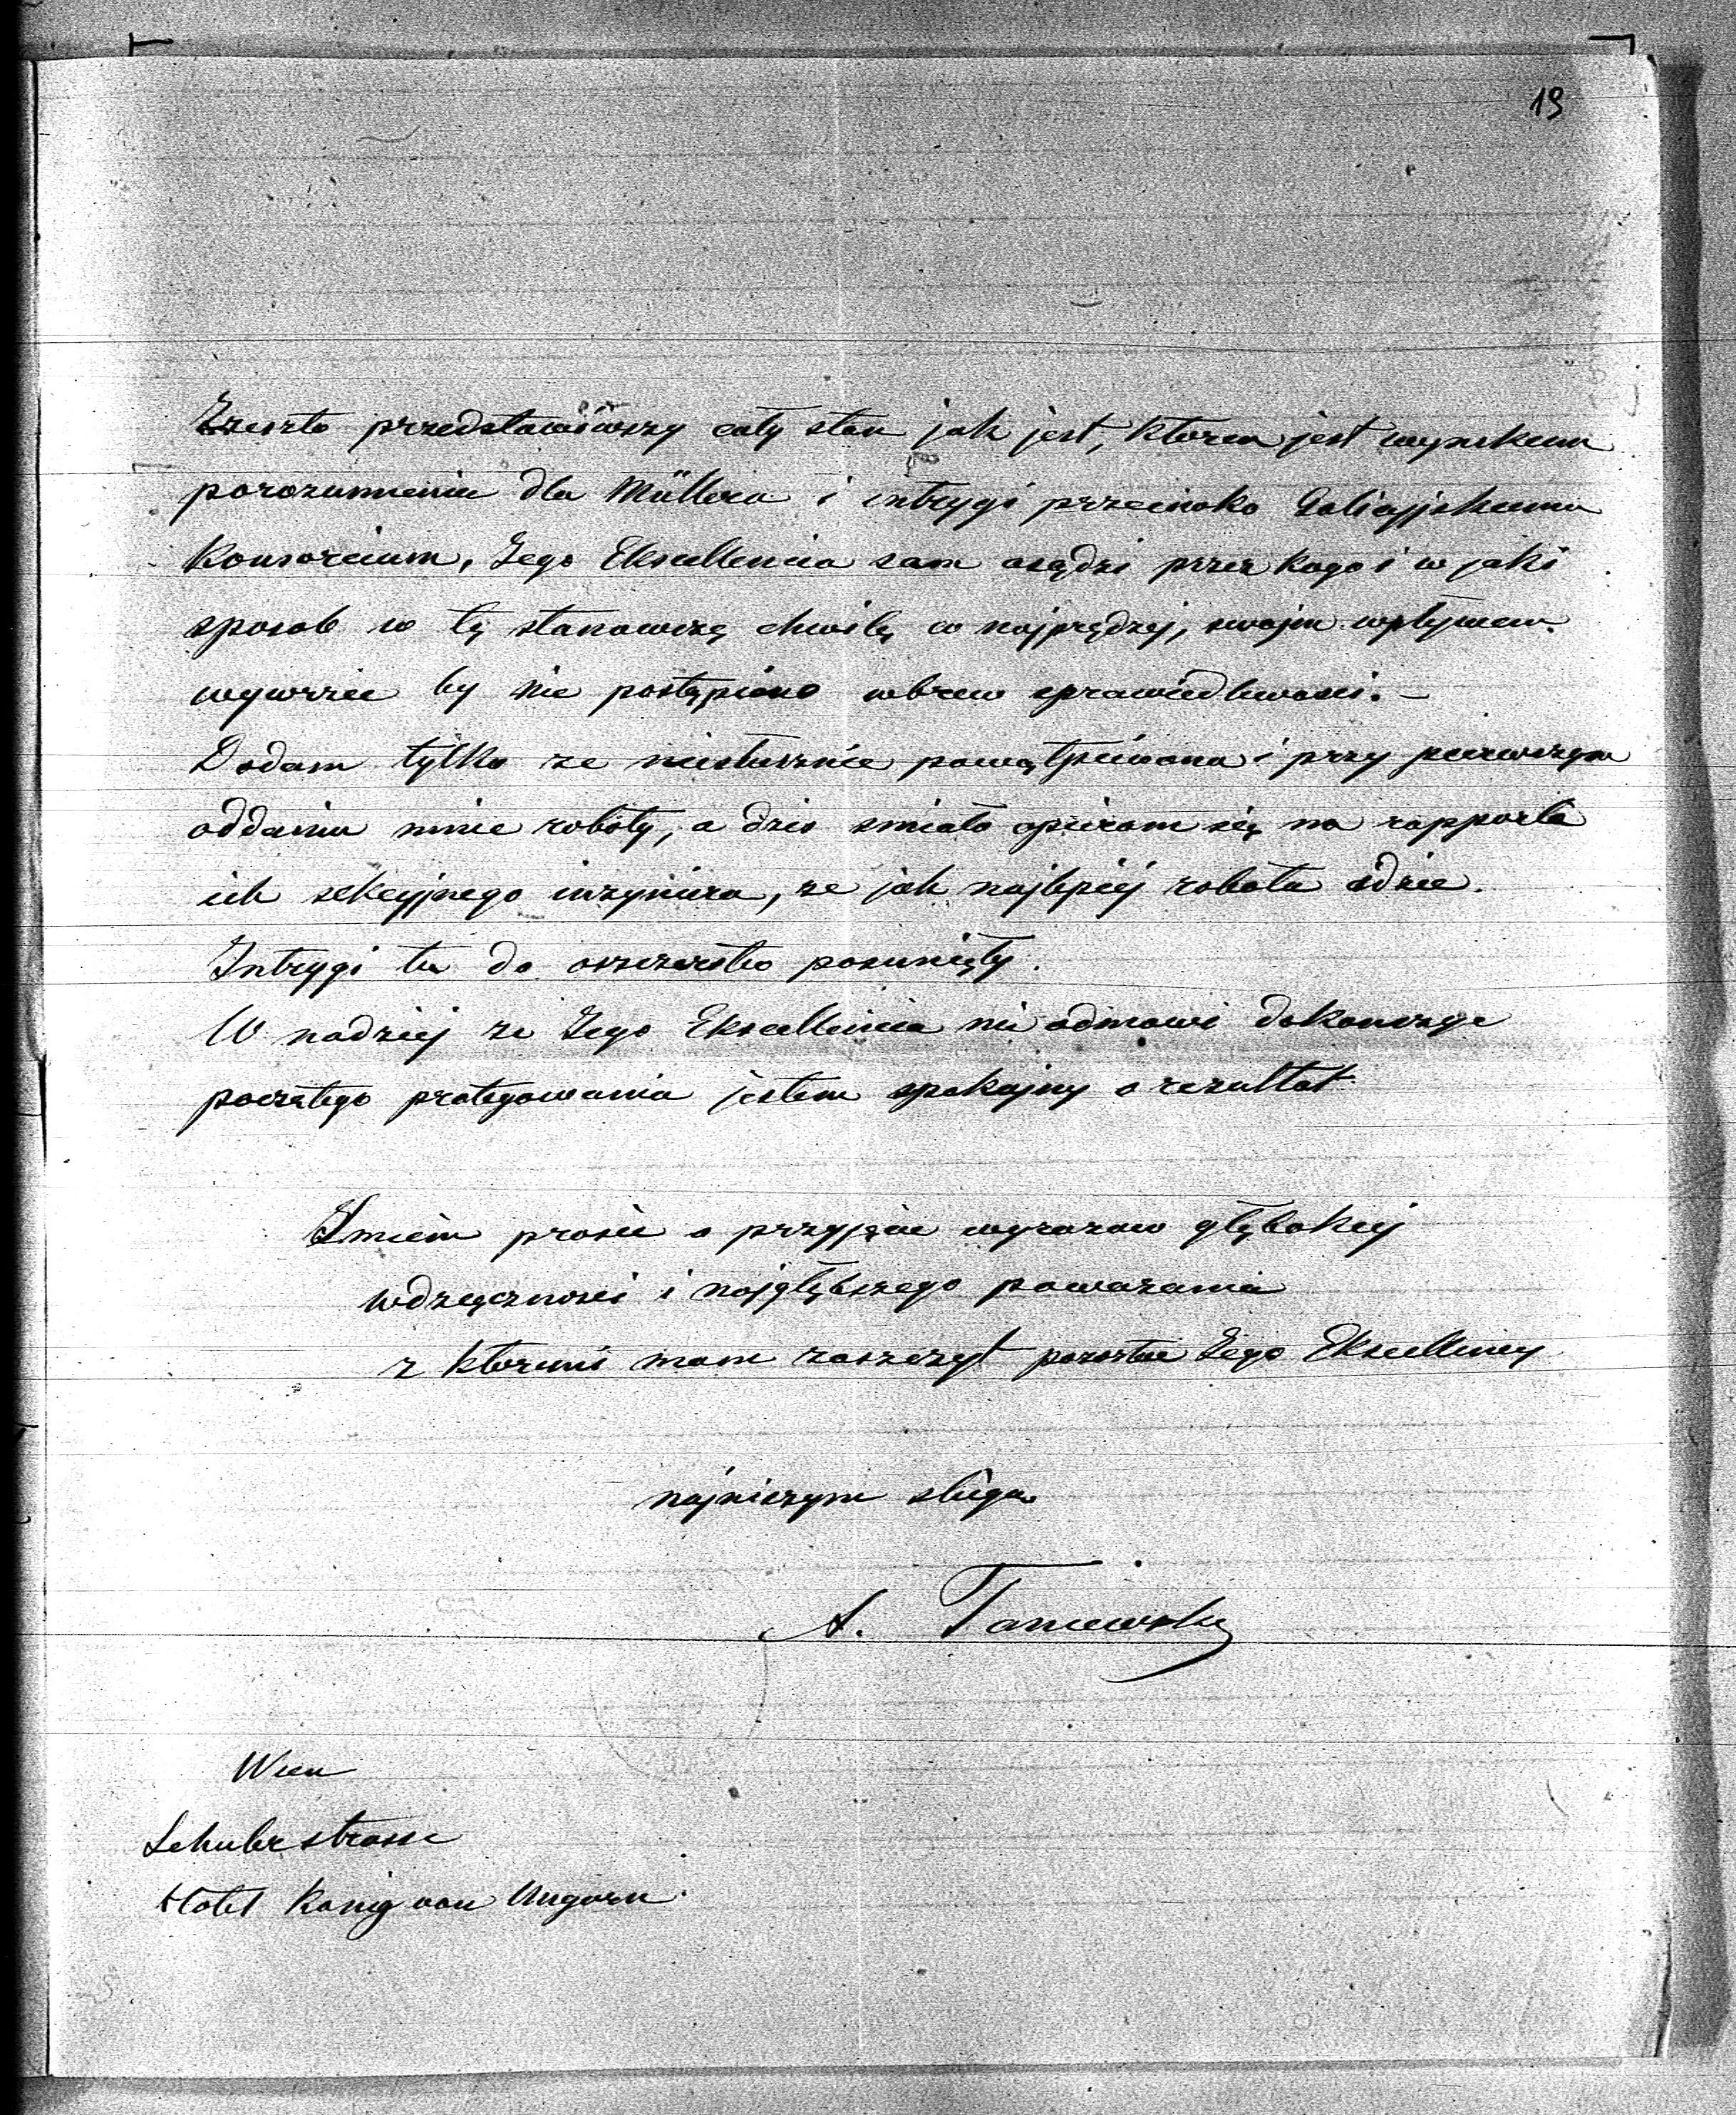 19
Zreszto przedstawiwszy cały stan jak jest, ktoren jest wynikem
porozumienia dla Müllera i intrygi przeciwko Galicyjskiemu
Konsorcium, Jego Ekscellencia sam osądzi przez kogo i w jaki
sposob w tę stanowczę chwilę co najprędzej, swojm wpływem
wywrzie by nie postąpiono wbrew sprawiedliwosci. —
Dodam tylko ze niesłusznie powątpiewano i przy pierwszym
oddaniu mnie roboty, a dzis smiało opieram się na rapporta
ich sekcyjnego inzyniera, ze jak najlepiej robota idzie.
Intrygi tu do oszczerstw posunięty.
W nadziej ze Jego Ekscellencia nie odmowi dokonczyc
poczętego protegowania jestem spokojny o rezultat
Smiem prosic o przyjęcie wyrazow głębokiej
wdzięcznosci i najgłębszego powazania
z ktoremi mam zaszczyt pozostac Jego Ekscellencij
najniszym sługa
A. Taniewski
Wien
Schulerstrasse
Hotel Konig von Ungarn.